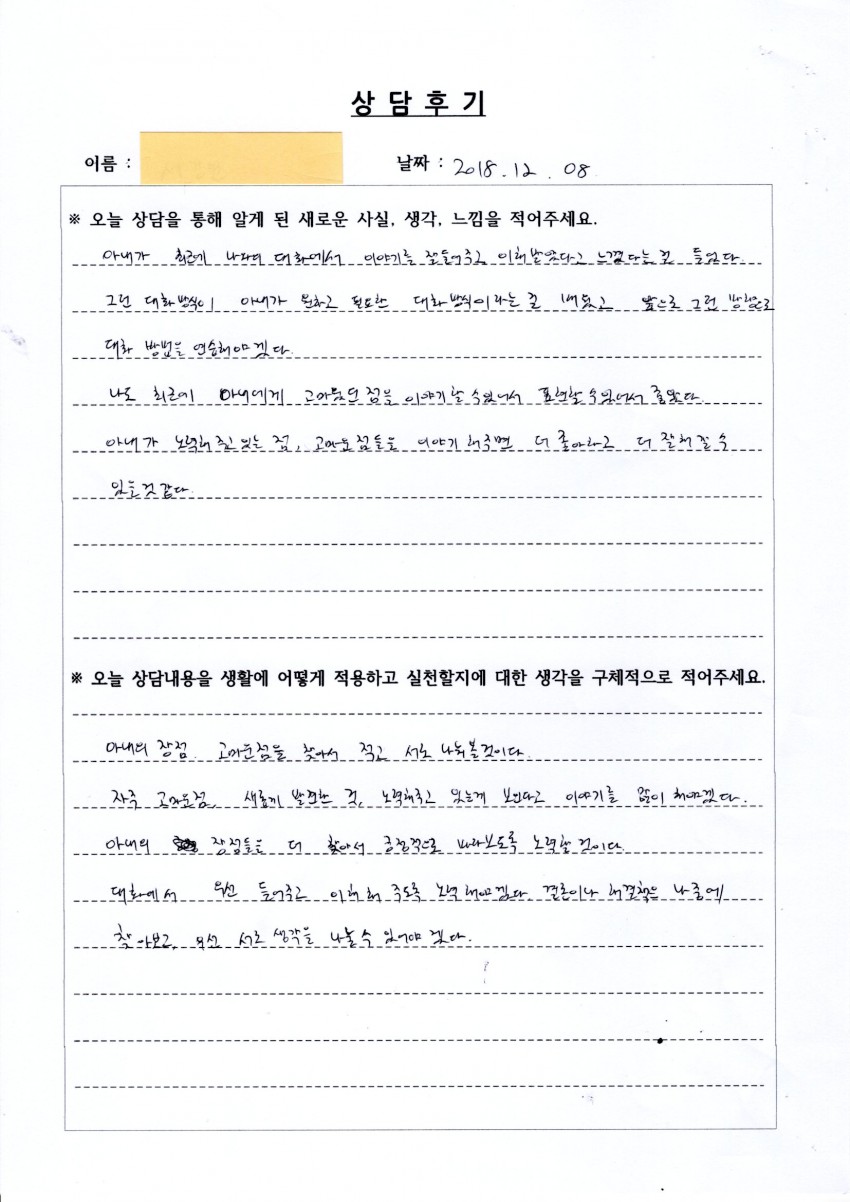 상 담 후 기
이름 :
날짜 : 2018. 12. 08
※ 오늘 상담을 통해 알게 된 새로운 사실, 생각, 느낌을 적어주세요.
아내가 최근에 나와의 대화에서 이야기를 잘들어주고 이해받았다고 느꼈다는 것 들었다.
그런 대화방식이 아내가 원하고 필요한 대화방식이라는 걸 배웠고 앞으로 그런 방향으로
대화 방법을 연습해야겠다.
나도 최근에 아내에게 고마웠던 점을 이야기할 수있어서 표현할 수있어서 좋았다.
아내가 노력해주고 있는 점, 고마운점들을 이야기 해주면 더 좋아하고 더 잘해질 수
있는것 같다.
※ 오늘 상담내용을 생활에 어떻게 적용하고 실천할지에 대한 생각을 구체적으로 적어주세요.
아내의 장점 고마운점을 찾아서 적고 서로 나눠볼것이다.
자주 고마운점, 새롭게 발견한 것, 노력해주고 있는게 보인다고 이야기를 많이 해야겠다.
아내의 장점들을 더 찾아서 긍정적으로 바라보도록 노력할 것이다.
대화에서 우선 들어주고 이해해 주도록 노력해야겠다. 결론이나 해결책은 나중에
찾아보고, 우선 서로 생각을 나눌 수 있어야 겠다.